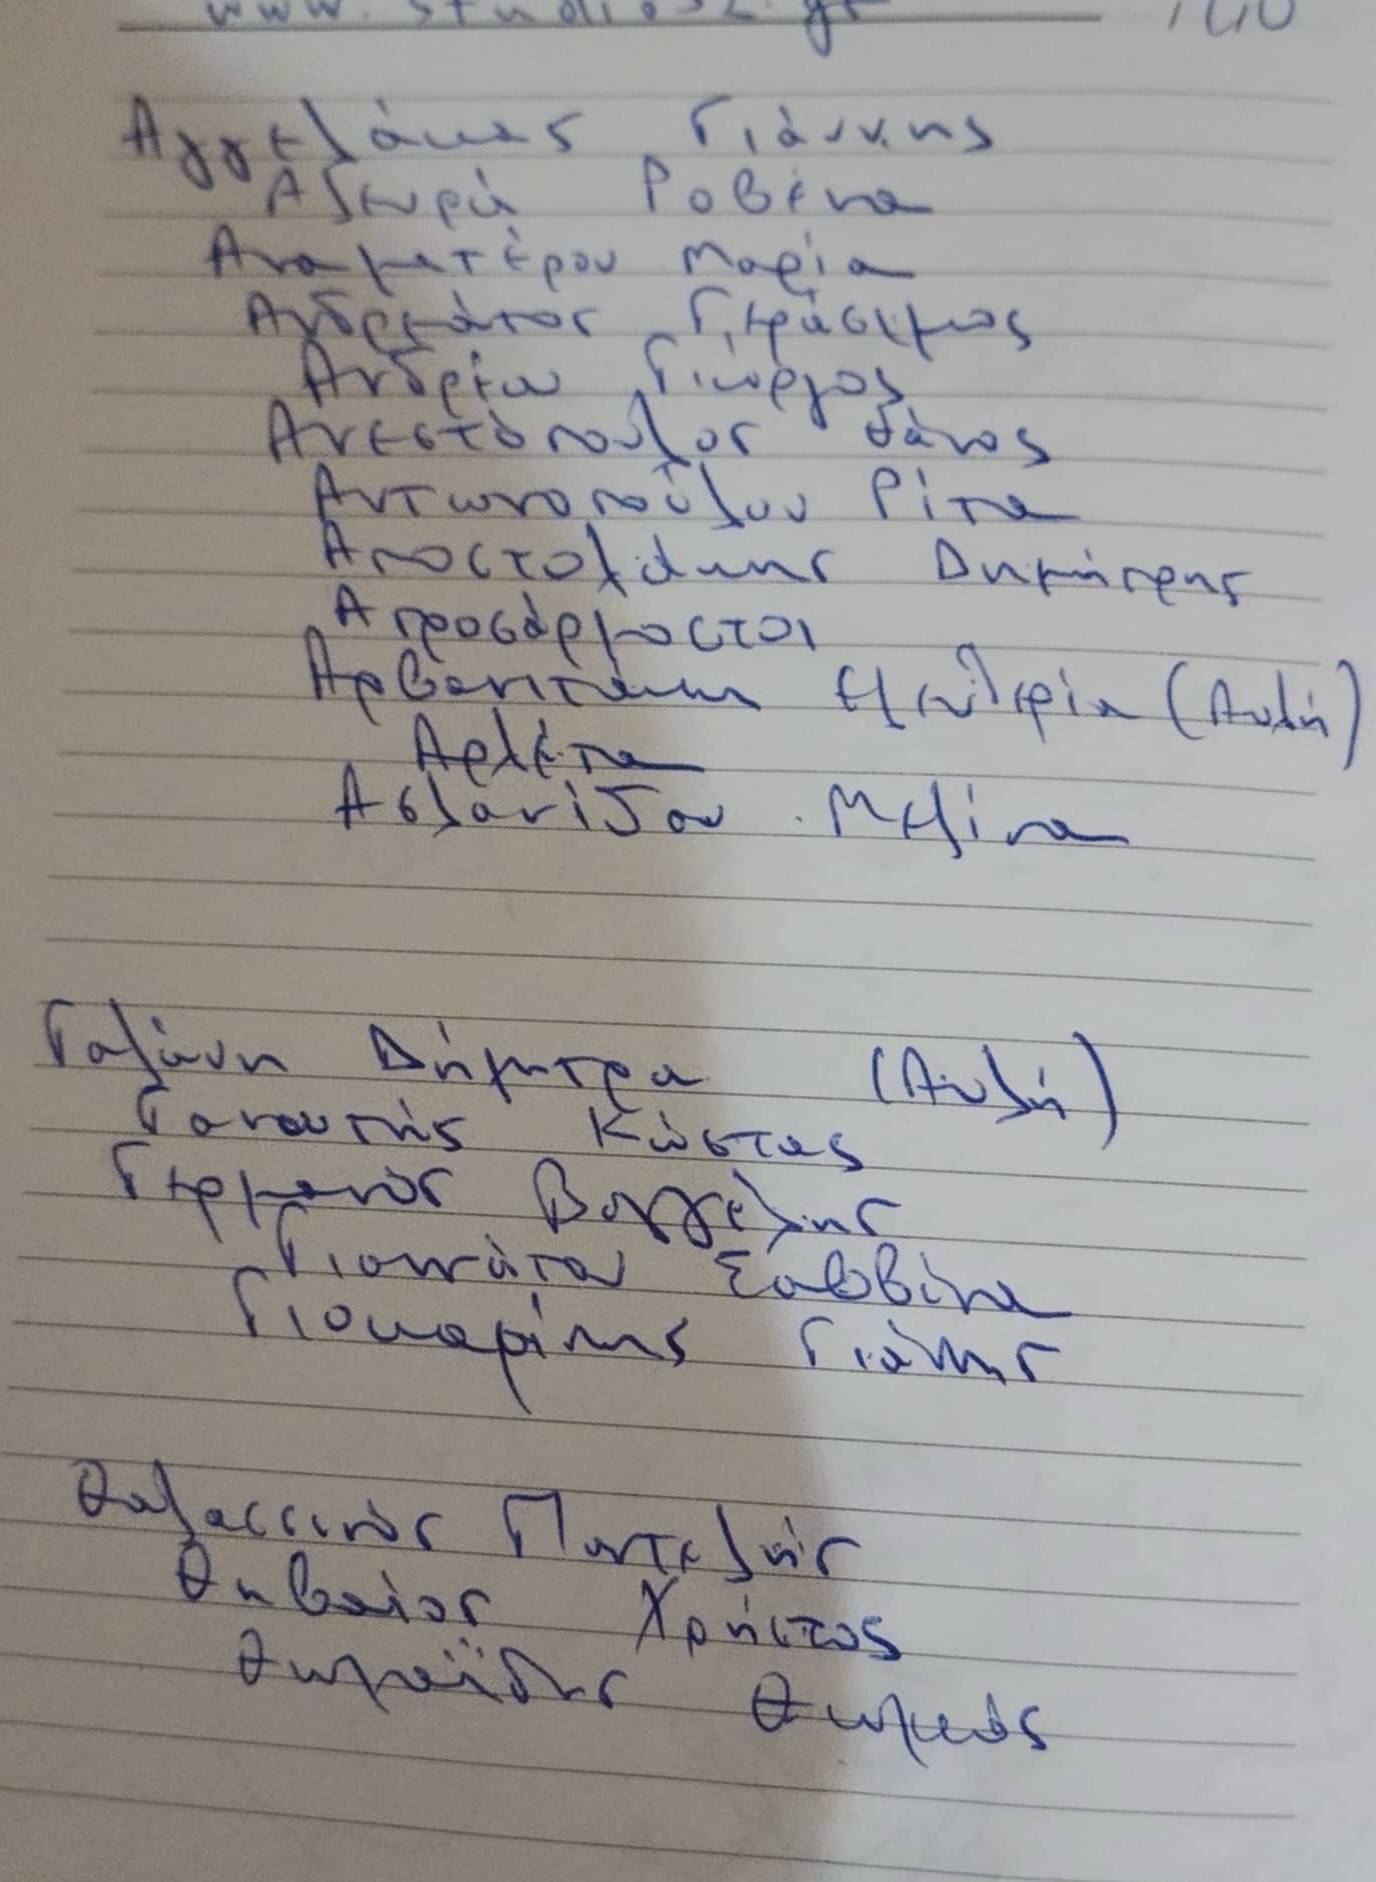 Αγγελάκας Γιάννης
Ροβένα
Αναματερού Μαρία
Ανδρεάτος Γεράσιμος
Ανδρέου Γιώργος
Ανεστόπουλος Θάνος
Αντωνοπούλου Ρίτα
Αποστολάκης Δημήτρης
Απροσάρμοστοι
Αρβανιτάκη Ελευθερία (Αυλή)
Αρλέτα
Ασλανίδου Μελίνα
Γαλάνη Δήμητρα (Αυλή)
Γανωτής Κώστας
Γερμανός Βαγγέλης
Γιαννάτου Σαββίνα
Γιοκαρίνης Γιάννης
Θαλασσινός Παντελής
Θηβαίος Χρήστος
Θωμαΐδης Θωμάς